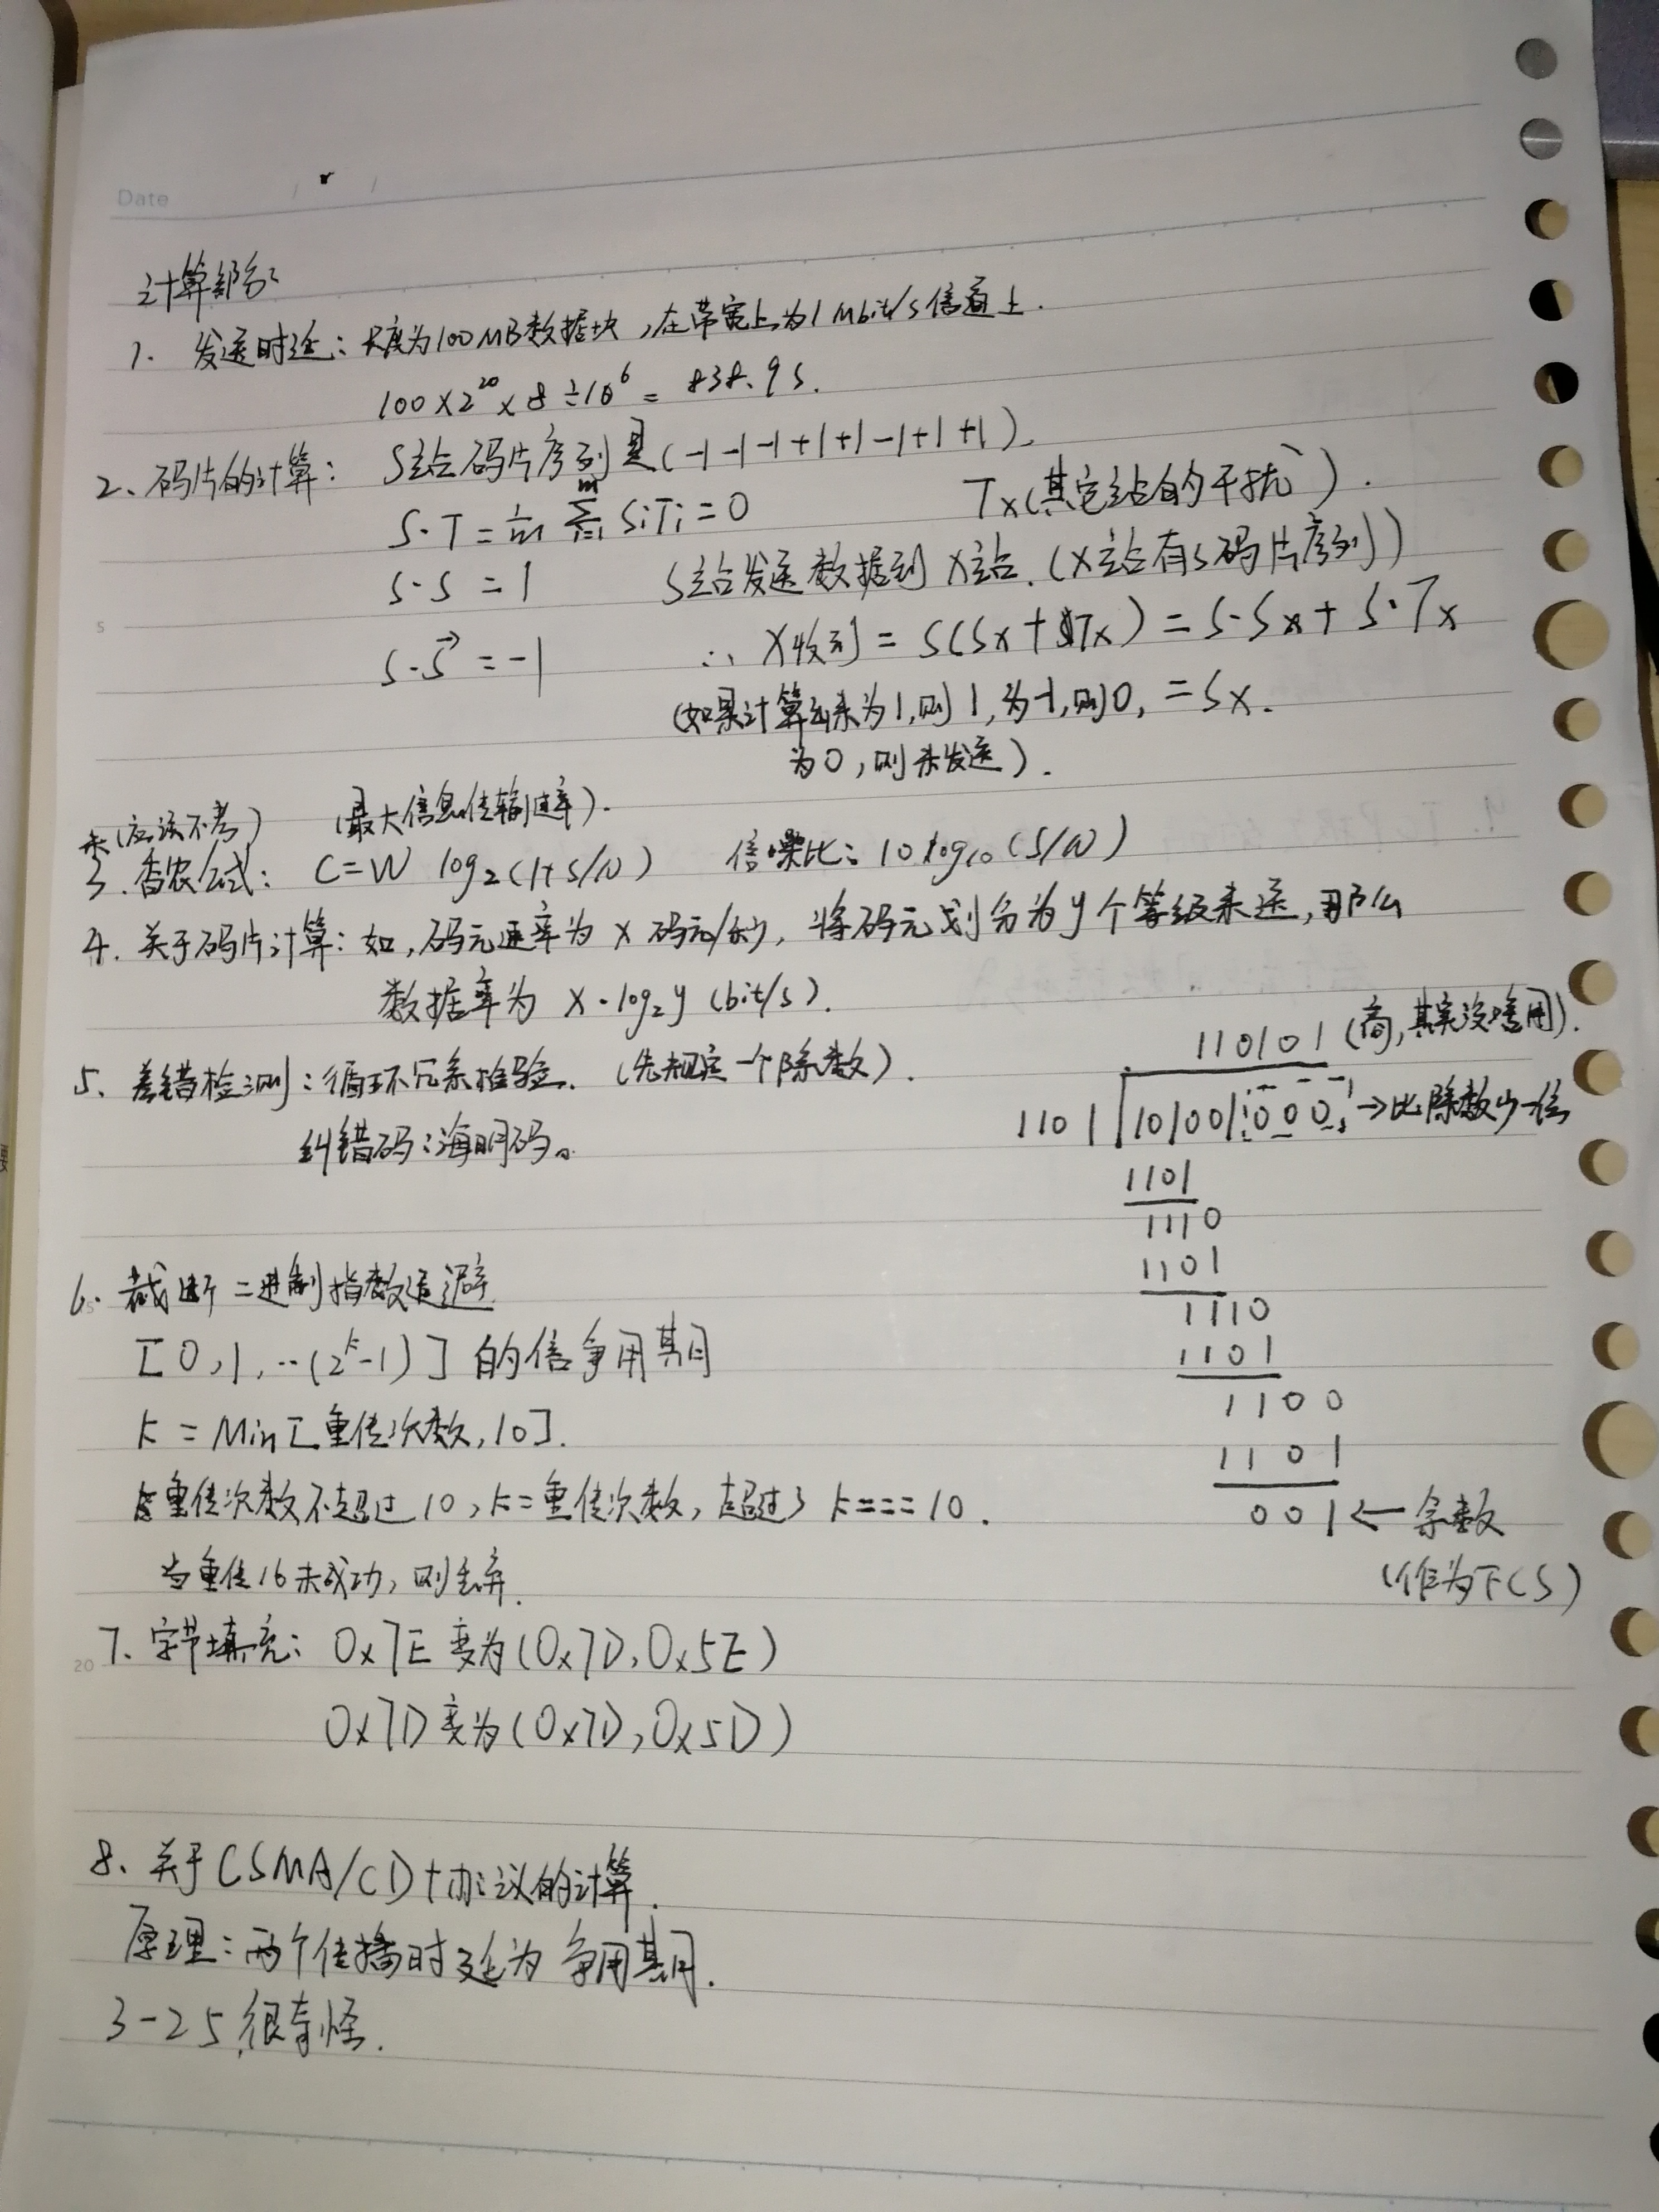 Date / /
计算部分:
1. 发送时延：长度为100MB数据块，在带宽上为1Mbit/s信道上.
100×2^20×8÷10^6 = 838.9s.
2、码片的计算： S站码片序列是(-1-1-1+1+1-1+1+1).
S·T = 1/m ∑(i=1, m) SiTi = 0 Tx(其它站的干扰).
S·S = 1 S站发送数据到X站.(X站有S码片序列)
S·S⃗ = -1 ∴ X收到 = S(Sx+Tx) = S·Sx + S·Tx
(如果计算出来为1,则1,为-1,则0, = Sx.
为0,则未发送).
(应该不考) (最大信息传输速率).
3. 香农公式： C=W log₂(1+S/N) 信噪比：10 log₁₀(S/N)
4. 关于码片计算：如,码元速率为 x 码元/秒, 将码元划分为y个等级来送,那么
数据率为 x·log₂y (bit/s).
5、差错检测：循环冗余检验. (先规定一个除数).
纠错码：海明码。
110101 (商,其实没啥用).
1101 101001000 →比除数少一位
1101
1110
1101
1110
1101
1100
1101
001 ← 余数
(作为FCS)
6. 截断二进制指数退避.
[0,1,··(2^k-1)] 的倍争用期
k = Min[重传次数,10].
重传次数不超过10,k=重传次数, 超过了 k===10.
当重传16未成功,则丢弃.
7、字节填充： 0x7E 变为(0x7D,0x5E)
0x7D变为(0x7D,0x5D)
8、关于CSMA/CD协议的计算.
原理：两个传播时延为争用期.
3-25,很奇怪.
5
20